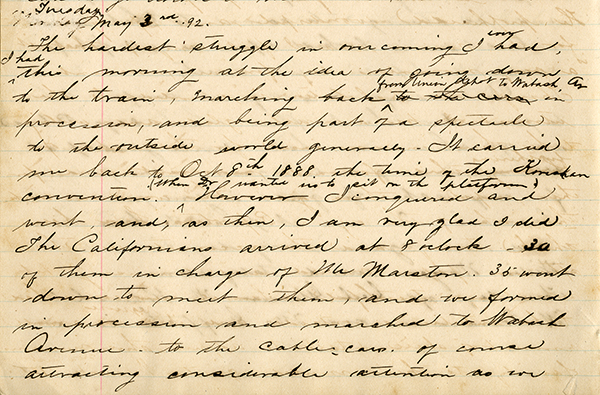 Tuesday
May 3rd. 92.
The hardest struggle in overcoming I ever had,
I had
this morning at the idea of going down
to the train, marching back to the cars in
from Union Depot to Wabash Av
procession, and being part of a spectacle
to the outside world generally. It carried
me back to Oct 8th 1888. the time of the Koreshan
(When Dr wanted us to sit on the platform)
convention. However I conquered and
went and, as then, I am very glad I did
The Californians arrived at 8 oclock - 30
of them in charge of Mr Marston. 35 went
down to meet them, and we formed
in procession and marched to Wabash
Avenue. to the cable-cars. of course
attracting considerable attention as we